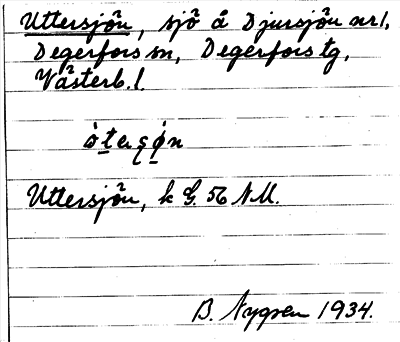 Uttersjön, sjö å Djursjön nr 1,
Degerfors sn, Degerfors tg,
Västerb. l.
Uttersjön, k G. 56 NM.
B. Nygren 1934.